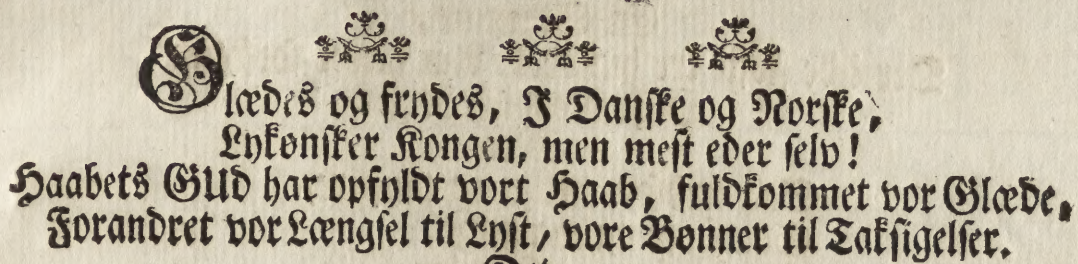 Glædes og frydes, I Danske og Norske,
Lykønsker Kongen, men mest eder selv!
Haabets GUd har opfyldt vort Haab, fuldkommet vor Glæde,
Forandret vor Længsel til Lyst, vore Bønner til Taksigelser.